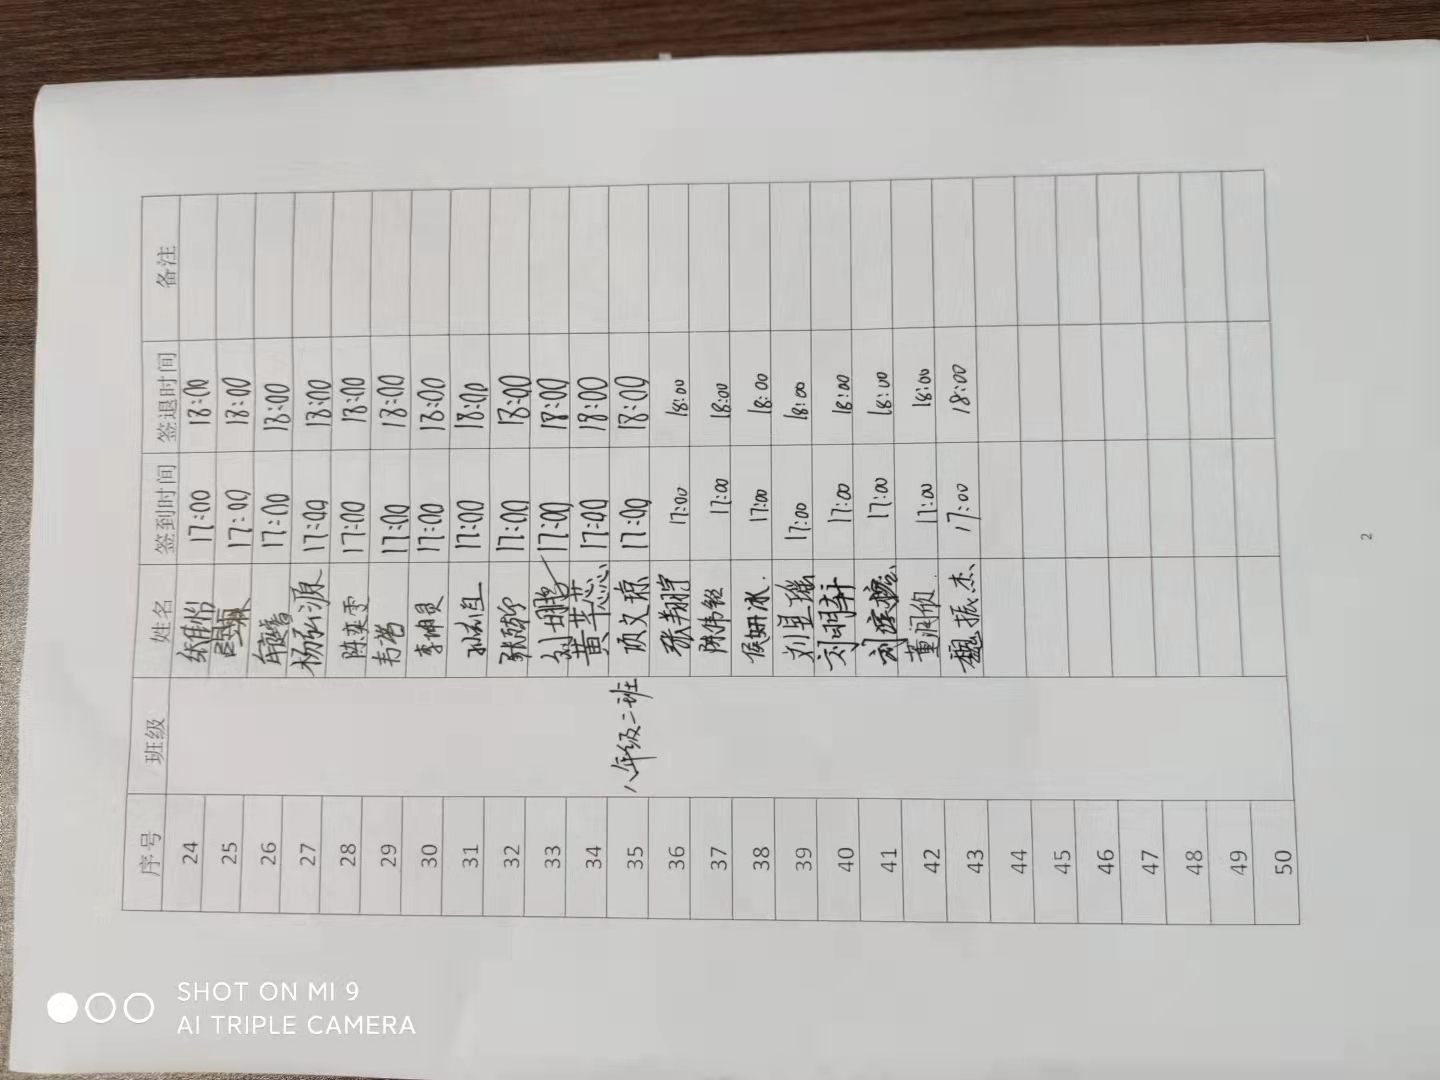 序号 班级 姓名 签到时间 签退时间 备注
24 17:00 18:00
25 17:00 18:00
26 17:00 18:00
27 杨弘源 17:00 18:00
28 陈奕雯 17:00 18:00
29 17:00 18:00
30 17:00 18:00
31 17:00 18:00
32 17:00 18:00
33 17:00 18:00
34 黄芊蕊 17:00 18:00
35 八年级二班 17:00 18:00
36 张翔宇 17:00 18:00
37 17:00 18:00
38 侯妍冰 17:00 18:00
39 17:00 18:00
40 刘明轩 17:00 18:00
41 17:00 18:00
42 17:00 18:00
43 魏振杰 17:00 18:00
44
45
46
47
48
49
50
2
SHOT ON MI 9
AI TRIPLE CAMERA